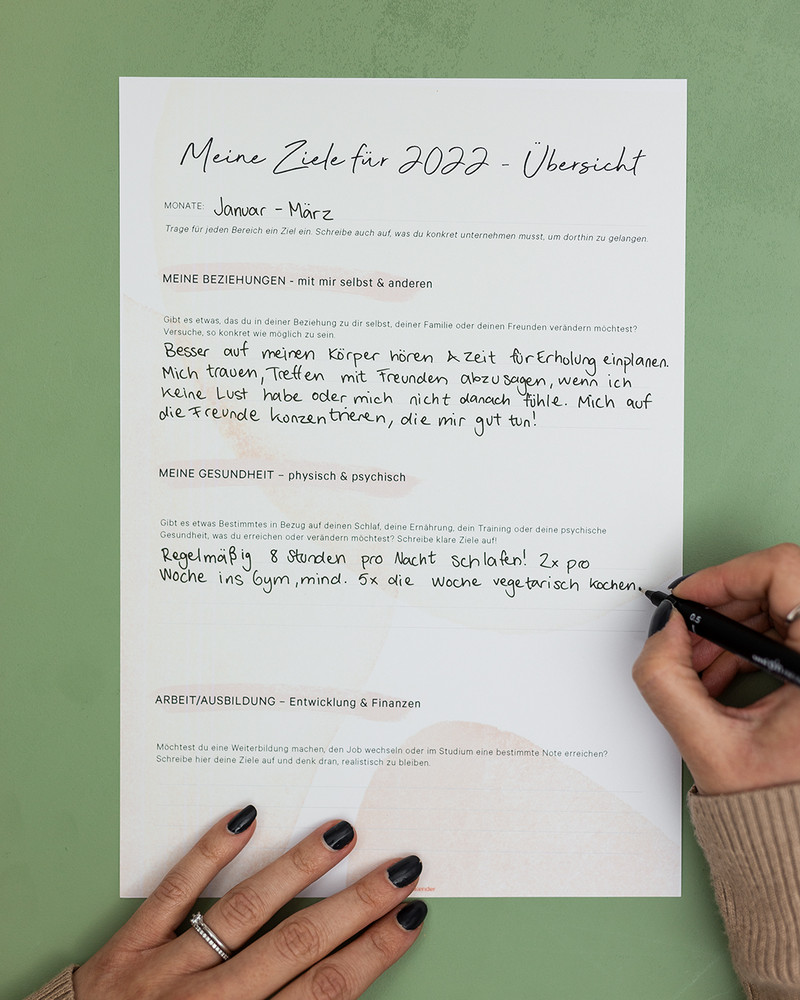 Meine Ziele für 2022 - Übersicht
MONATE: Januar - März
Trage für jeden Bereich ein Ziel ein. Schreibe auch auf, was du konkret unternehmen musst, um dorthin zu gelangen.
MEINE BEZIEHUNGEN - mit mir selbst & anderen
Gibt es etwas, das du in deiner Beziehung zu dir selbst, deiner Familie oder deinen Freunden verändern möchtest?
Versuche, so konkret wie möglich zu sein.
Besser auf meinen Körper hören & Zeit für Erholung einplanen.
Mich trauen, Treffen mit Freunden abzusagen, wenn ich
keine Lust habe oder mich nicht danach fühle. Mich auf
die Freunde konzentrieren, die mir gut tun!
MEINE GESUNDHEIT – physisch & psychisch
Gibt es etwas Bestimmtes in Bezug auf deinen Schlaf, deine Ernährung, dein Training oder deine psychische
Gesundheit, was du erreichen oder verändern möchtest? Schreibe klare Ziele auf!
Regelmäßig 8 Stunden pro Nacht schlafen! 2x pro
Woche ins Gym, mind. 5x die Woche vegetarisch kochen.
0.5
ARBEIT/AUSBILDUNG – Entwicklung & Finanzen
Möchtest du eine Weiterbildung machen, den Job wechseln oder im Studium eine bestimmte Note erreichen?
Schreibe hier deine Ziele auf und denk dran, realistisch zu bleiben.